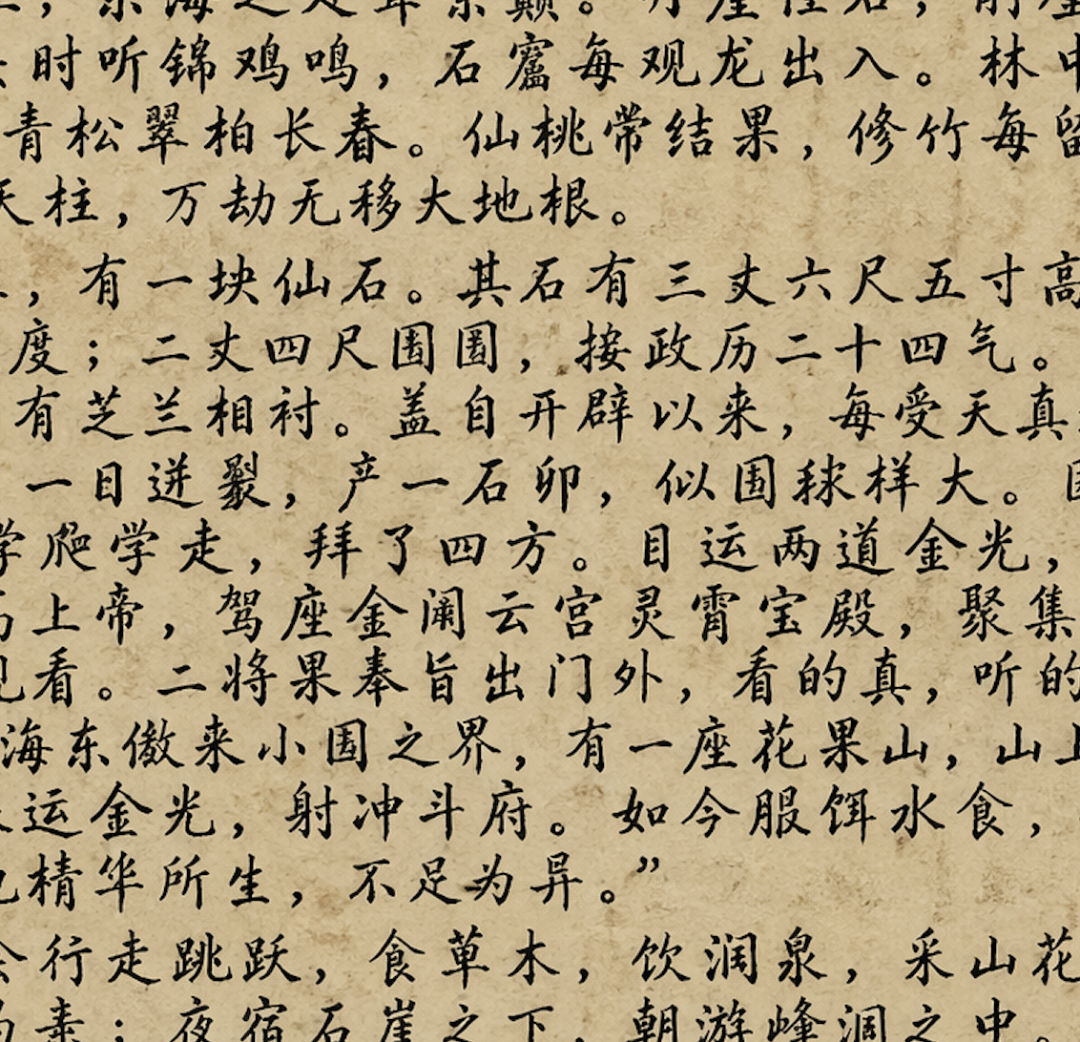 东海之处耸东巅。丹崖怪石，削
时听锦鸡鸣，石窟每观龙出入。林中
青松翠柏长春。仙桃常结果，修竹每留
天柱，万劫无移大地根。
，有一块仙石。其石有三丈六尺五寸高
度；二丈四尺围圆，按政历二十四气。
有芝兰相衬。盖自开辟以来，每受天真
一日迸裂，产一石卵，似围球样大。
学爬学走，拜了四方。目运两道金光，
上帝，驾座金阙云宫灵霄宝殿，聚集
见看。二将果奉旨出门外，看的真，听的
海东傲来小国之界，有一座花果山，山上
运金光，射冲斗府。如今服饵水食，
精华所生，不足为异。”
会行走跳跃，食草木，饮涧泉，采山花
；夜宿石崖之下，朝游峰涧之中。